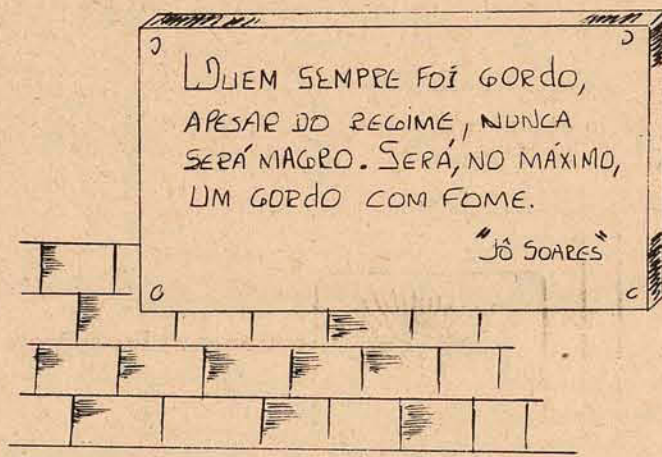 QUEM SEMPRE FOI GORDO,
APESAR DO REGIME, NUNCA
SERÁ MAGRO. SERÁ, NO MÁXIMO,
UM GORDO COM FOME.
"JÔ SOARES"